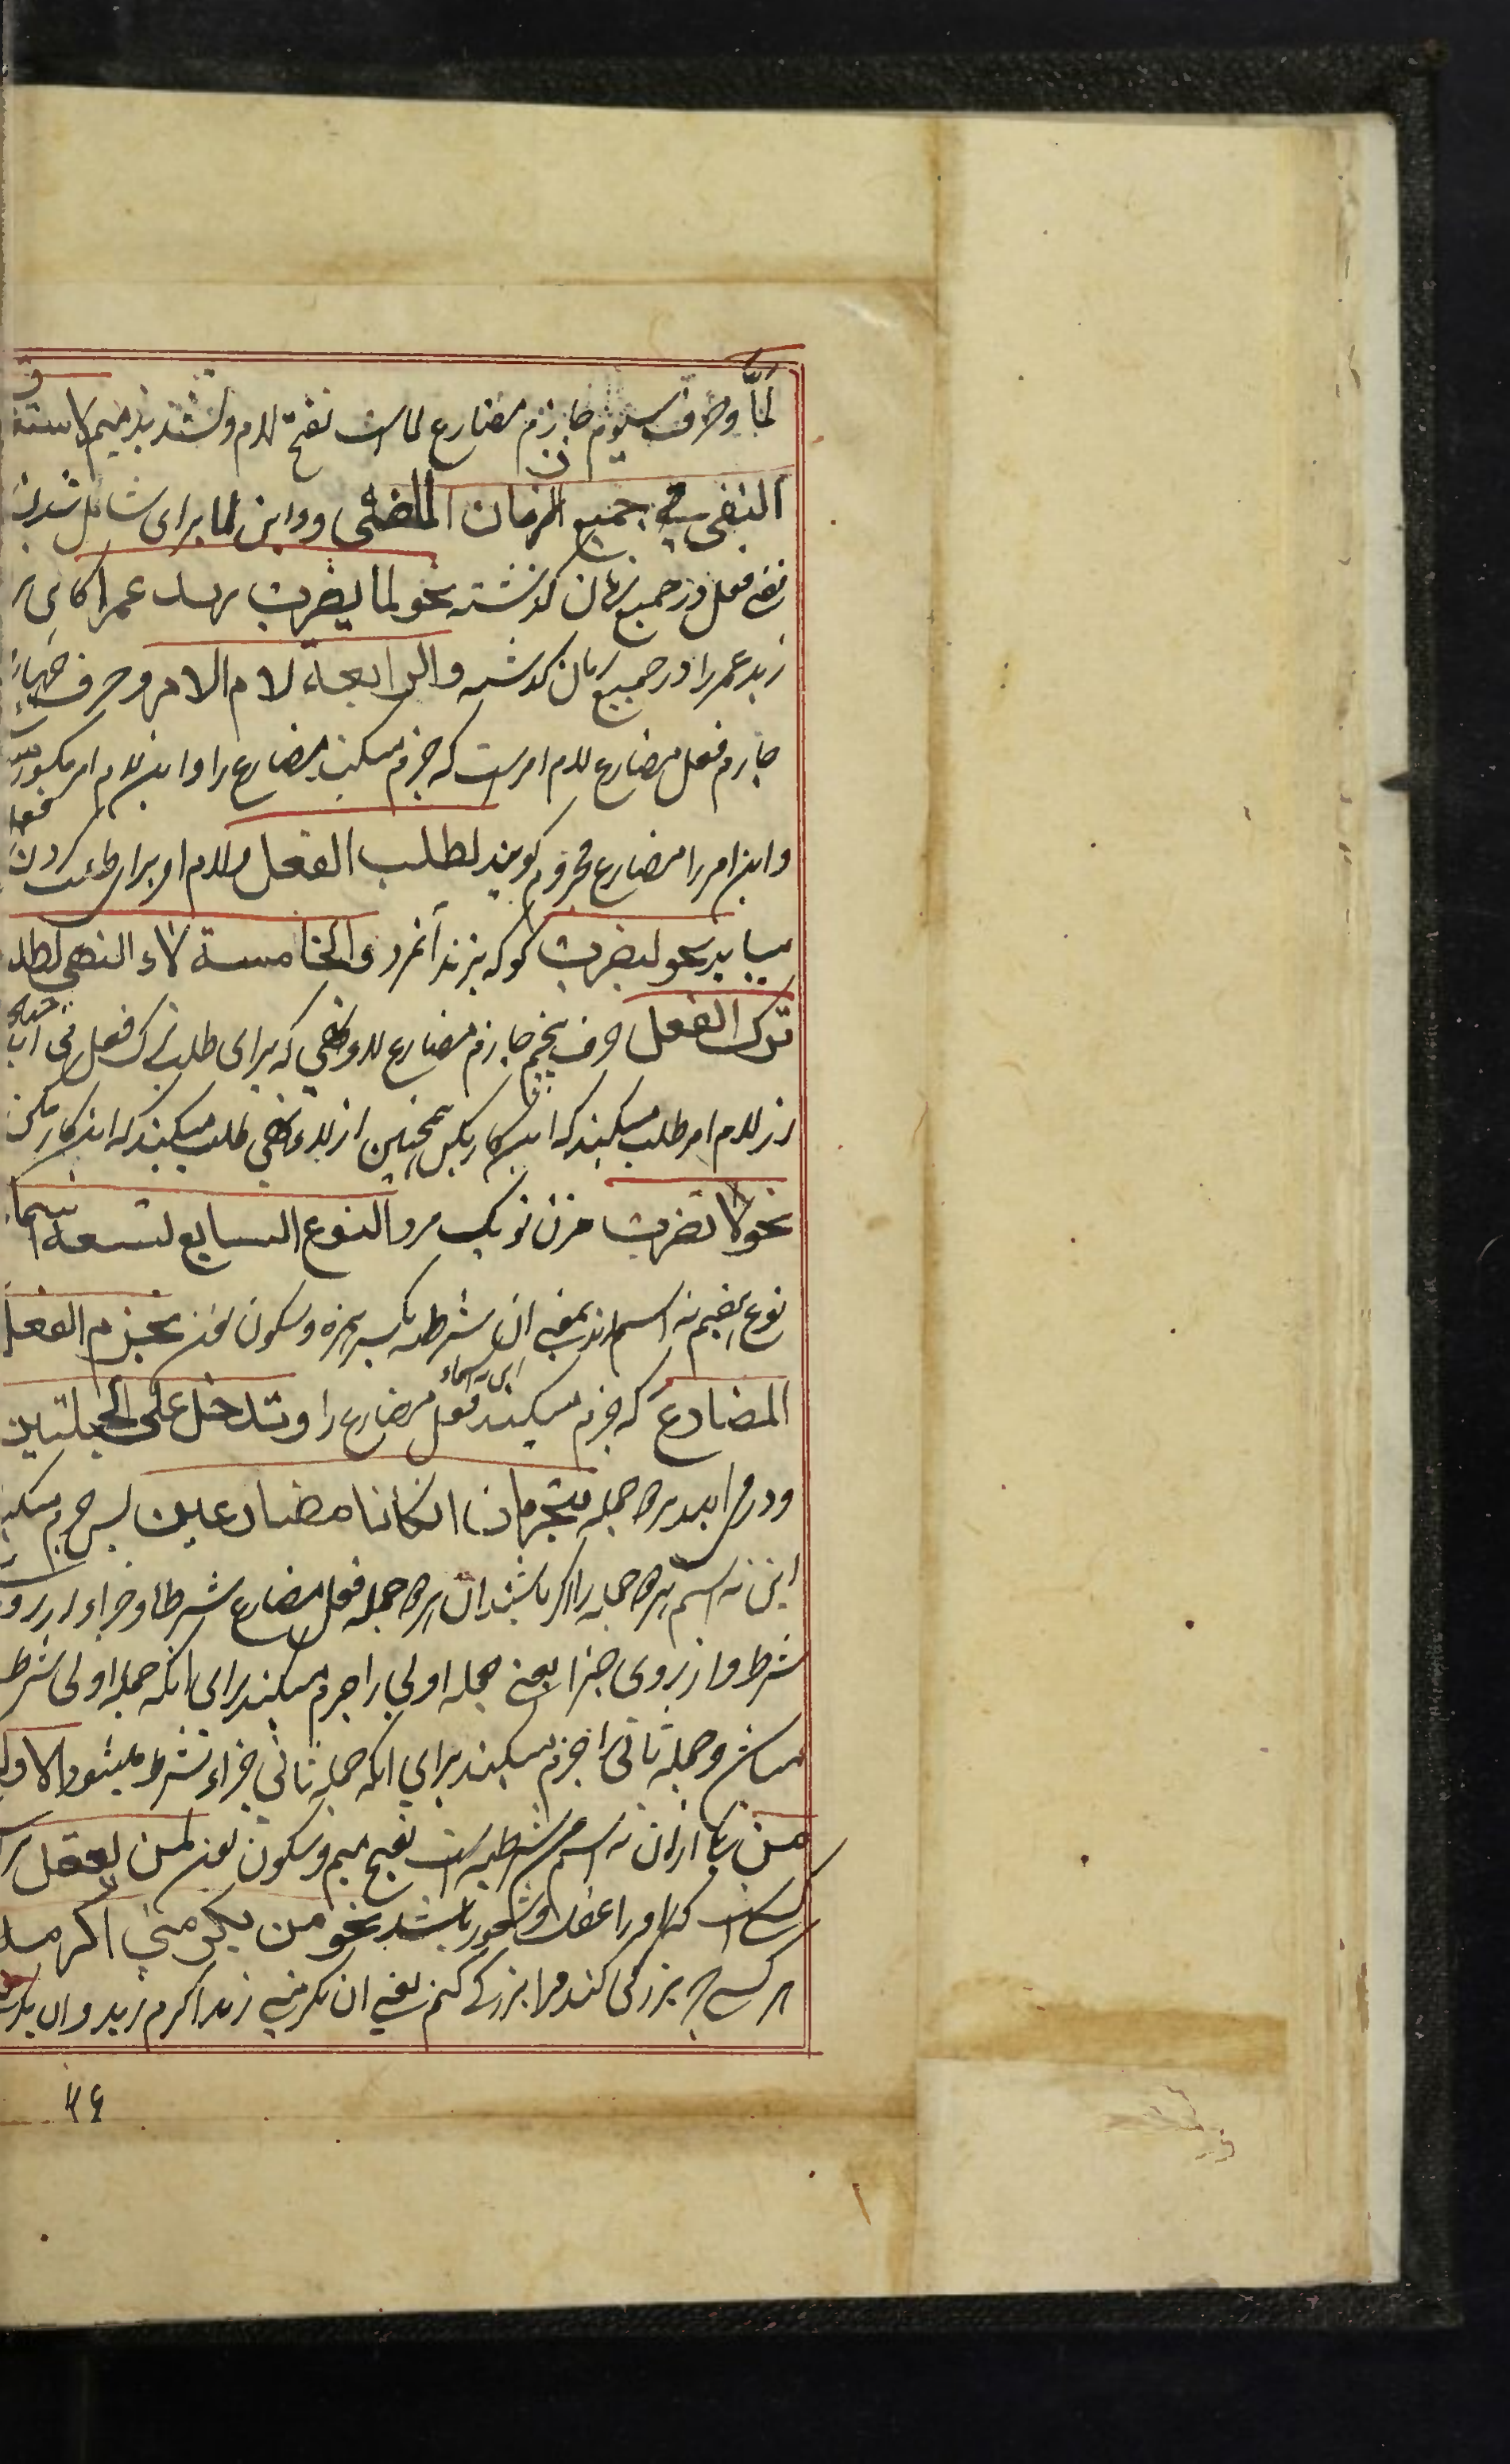 لمَّا وحرف سیوم جازم مضارع لماست بفتح لام وتشدید میم لاستغ
النفی فی جمیع الزمان الماضی واین لما برای شامل شدن
نفی فعل در جمیع زمان گذشته نحو لما یضرب زید عمرا
زید عمر را در جمیع زمان گذشته والرابعة لام الامر وحرف چهارم
جازم فعل مضارع لام امرست که جزم میکند مضارع را واین لام امر
واین امر را مضارع مجزوم گویند لطلب الفعل ولام او برای طلب کردن فعل
میاید نحو لیضرب گو که بزند آنمرد والخامسة لاء النهی لطلب
ترک الفعل حرف پنجم جازم مضارع لاء نهی که برای طلب ترک فعل می آید
از لام امر طلب میکنند که این کار بکن همچنین از لاء نهی طلب میکنند که این کار مکن
نحو لا تضرب مزن تو یک مرد النوع السابع تسعة اسماء
نوع هفتم نه اسم اند بمعنی ان شرطیه بکسر همزه وسکون نون تجزم الفعل
المضارع که جزم میکنند این نه اسماء فعل مضارع را وتدخل علی الجملتین
ودر می ایند بر دو جمله تجزمان ان کانا مضارعین پس جزم میکند
این نه اسم هر دو جمله را اگر باشند ان هر دو جمله فعل مضارع شرطا وجزاء از روی
شرط واز روی جزا یعنی جمله اولی را جزم میکنند برای انکه جمله اولی شرط
وجمله ثانی را جزم میکنند برای انکه جمله ثانی جزاء شرط میشود الاولی
من یکی ازان نه اسم شرطیه است بفتح میم وسکون نون لمن یعقل
کسی است که او را عقل وشعور باشد نحو من یکرمنی اکرمه
هر کسی که بزرگی کند مرا بزرگی کنم یعنی ان یکرمنی زید اکرم زید وان یکرمنی
۲۶